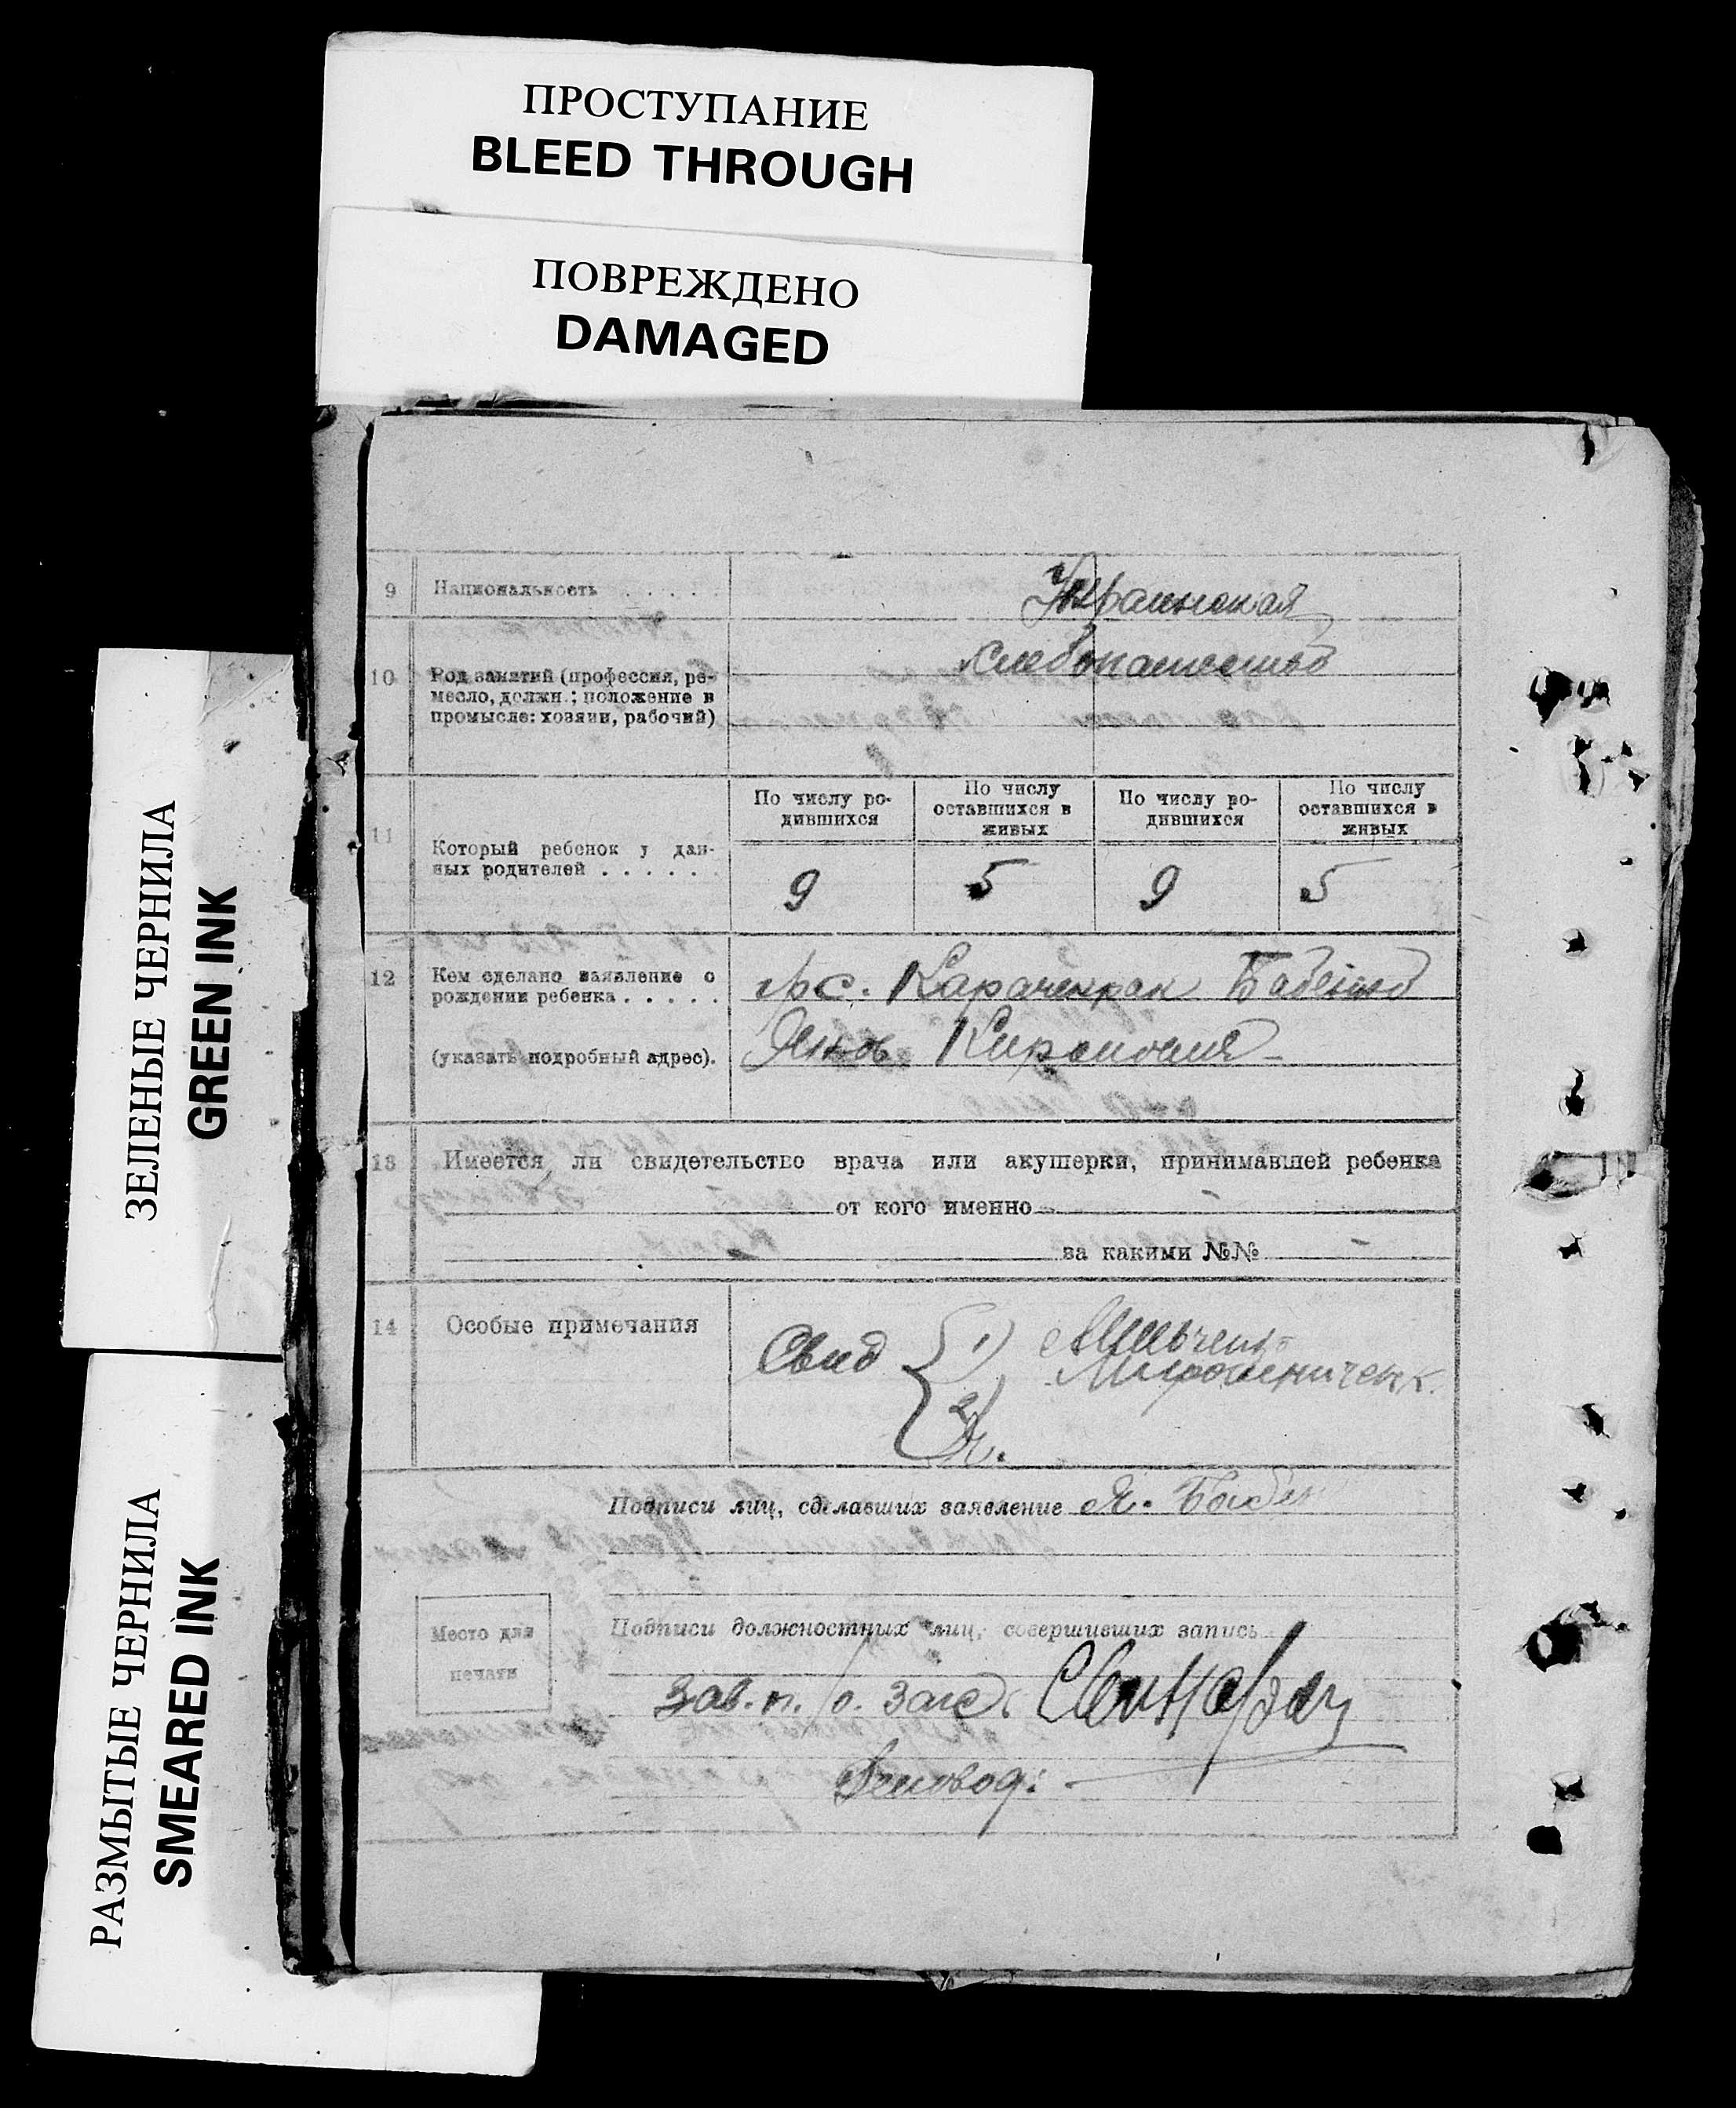 ПРОСТУПАНИЕ
BLEED THROUGH
ПОВРЕЖДЕНО
DAMAGED
ЗЕЛЕНЫЕ ЧЕРНИЛА
GREEN INK
РАЗМЫТЫЕ ЧЕРНИЛА
SMEARED INK
9 Национальность . . . . . Украинская
10 Род занятий (профессия, ре-
месло, должн.; положение в
промысле: хозяин, рабочий)
хлебопашество
11 Который ребенок у дан-
ных родителей . . . . . .
По числу ро-
дившихся
По числу
оставшихся в
живых
По числу ро-
дившихся
По числу
оставшихся в
живых
9 5 9 5
12 Кем сделано заявление о
рождении ребенка . . . . .
(указать подробный адрес).
Бабенко
Яков
13 Имеется ли свидетельство врача или акушерки, принимавшей ребенка
от кого именно -
за какими №№ -
14 Особые примечания
Свид { 1)
2)
Подписи лиц, сделавших заявление Я. Бабен
Место для
печати
Подписи должностных лиц, совершивших запись
Зав. п/о. Загс
Деловод: